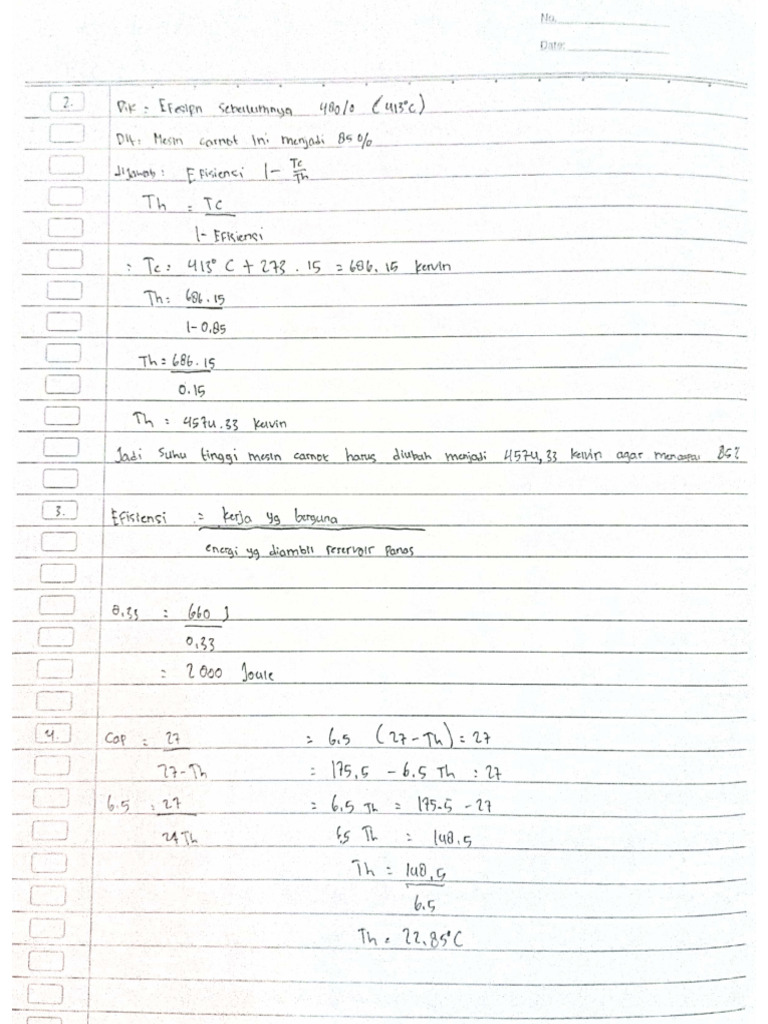 No.
Date:
2. Dik : Efesipn sebelumnya 480/0 (413°C)
Dit : Mesin carnot ini menjadi 850/0
dijawab : Efisiensi 1- Tc
Th
Th = Tc
1- Efisiensi
: Tc : 413° C + 273 . 15 = 686. 15 kervin
Th : 686. 15
1- 0.85
Th = 686. 15
0.15
Th : 4574.33 kelvin
Jadi suhu tinggi mesin carnot harus diubah menjadi 4574,33 kelvin agar mencapai 85%
3. Efistensi = kerja yg berguna
energi yg diambil reservoir panas
0,33 : 660 J
0,33
: 2000 Joule
4. Cop : 27 = 6.5 (27 - Th) : 27
27-Th = 175,5 - 6.5 Th : 27
6.5 : 27 = 6.5 Th = 175.5 - 27
24 Th 6,5 Th : 148.5
Th = 148,5
6.5
Th = 22.85°C